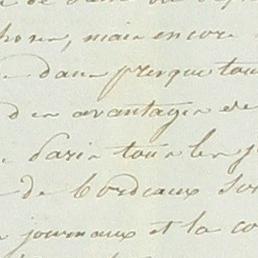 mais encore
dans presque tous
des avantages de
Paris tous les j
de bordeaux
journaux et la co